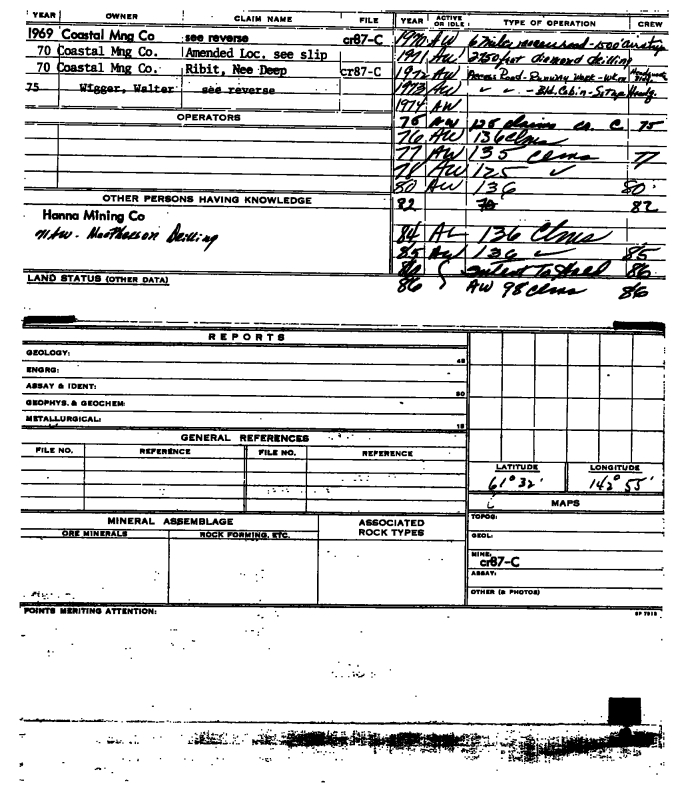 YEAR OWNER CLAIM NAME FILE
1969 Coastal Mng Co see reverse cr87-C
70 Coastal Mng Co. Amended Loc. see slip
70 Coastal Mng Co. Ribit, Nee Deep cr87-C
75 Wigger, Walter see reverse
OPERATORS
OTHER PERSONS HAVING KNOWLEDGE
Hanna Mining Co
Drilling
LAND STATUS (OTHER DATA)
YEAR ACTIVE OR IDLE TYPE OF OPERATION CREW
1970 AW 6 miles access road - 1500' airstrip
1971 AW 2250 foot diamond drilling
1972 AW Access Road - Runway Work - 
1973 AW ✓ ✓ - Bld. Cabin - Setup Headq.
1974 AW
75 AW 125 claims co. C 75
76 AW 136 clms
77 AW 135 clms 77
78 AW 125 ✓
80 AW 136 80
82 82
84 A 136 Clms
85 AW 136 ✓ 85
86 intent to Hold 86
86 AW 98 clms 86
REPORTS
GEOLOGY: 45
ENGRG:
ASSAY & IDENT: 30
GEOPHYS. & GEOCHEM:
METALLURGICAL: 15
GENERAL REFERENCES
FILE NO. REFERENCE FILE NO. REFERENCE
LATITUDE LONGITUDE
61° 32' 142° 55'
MAPS
TOPOG:
GEOL:
MINE: cr87-C
ASSAY:
OTHER (& PHOTOS)
MINERAL ASSEMBLAGE ASSOCIATED ROCK TYPES
ORE MINERALS ROCK FORMING, ETC.
POINTS MERITING ATTENTION: